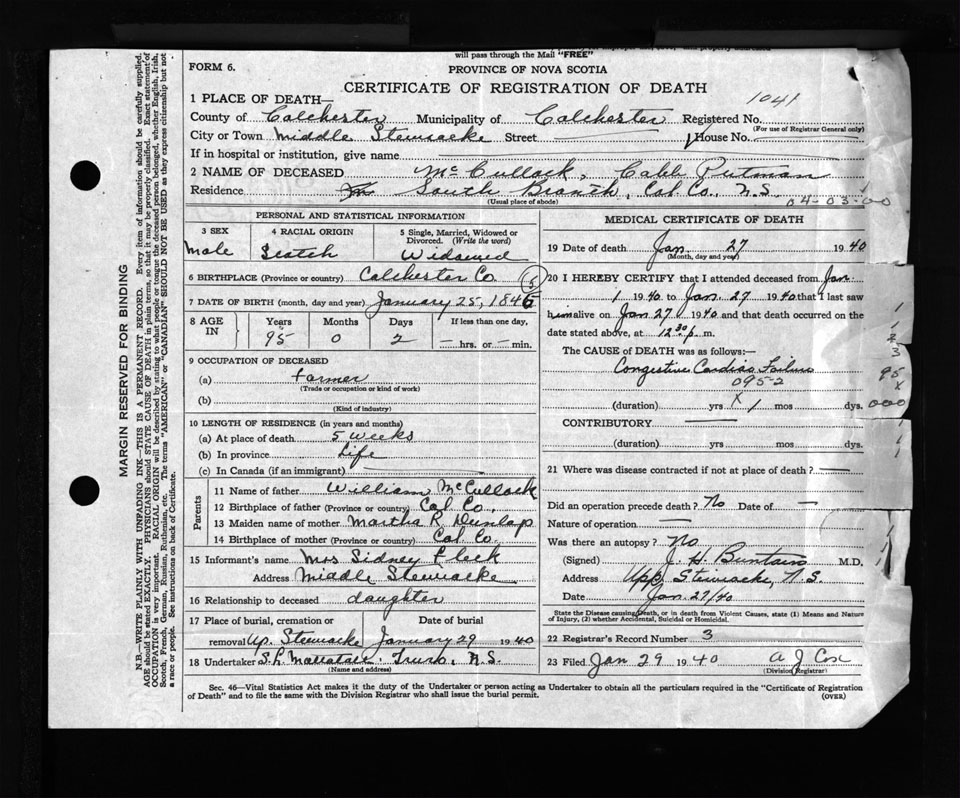 will pass through the Mail "FREE"
FORM 6.
PROVINCE OF NOVA SCOTIA
CERTIFICATE OF REGISTRATION OF DEATH
1041
1 PLACE OF DEATH—
County of Colchester Municipality of Colchester Registered No.
(For use of Registrar General only)
City or Town Middle Stewiacke Street House No.
If in hospital or institution, give name
2 NAME OF DECEASED McCullock, Caleb Putman
Residence South Branch, Col. Co., N.S.
(Usual place of abode)
04-03-00
PERSONAL AND STATISTICAL INFORMATION
3 SEX 4 RACIAL ORIGIN 5 Single, Married, Widowed or Divorced. (Write the word)
Male Scotch Widowed
6 BIRTHPLACE (Province or country) Colchester Co.
7 DATE OF BIRTH (month, day and year) January 25, 1845
(5)
8 AGE IN Years Months Days If less than one day,
95 0 2 — hrs. or — min.
9 OCCUPATION OF DECEASED
(a) Farmer
(Trade or occupation or kind of work)
(b)
(Kind of industry)
10 LENGTH OF RESIDENCE (in years and months)
(a) At place of death 5 weeks
(b) In province Life
(c) In Canada (if an immigrant)
Parents
11 Name of father William McCullock
12 Birthplace of father (Province or country) Col. Co.,
13 Maiden name of mother Martha R. Dunlap
14 Birthplace of mother (Province or country) Col. Co.
15 Informant's name Mrs Sidney
Address Middle Stewiacke
16 Relationship to deceased daughter
17 Place of burial, cremation or removal Up. Stewiacke Date of burial January 29 1940
18 Undertaker Truro, N.S.
(Name and address)
MEDICAL CERTIFICATE OF DEATH
19 Date of death Jan. 27 1940
(Month, day and year)
20 I HEREBY CERTIFY that I attended deceased from Jan.
1 1940 to Jan. 27 1940 that I last saw
him alive on Jan 27 1940 and that death occurred on the
date stated above, at 12 30 p. m.
The CAUSE of DEATH was as follows:—
Congestive Cardiac Failure
095-2
(duration) yrs x 1 mos dys.
CONTRIBUTORY —
(duration) yrs. mos. dys.
21 Where was disease contracted if not at place of death? —
Did an operation precede death? No Date of —
Nature of operation —
Was there an autopsy? No
(Signed) J. H. Buntain M.D.
Address Upp. Stewiacke, N.S.
Date Jan. 27/40
State the Disease causing Death, or in death from Violent Causes, state (1) Means and Nature
of Injury, (2) whether Accidental, Suicidal or Homicidal.
22 Registrar's Record Number 3
23 Filed Jan 29 1940 A J Cox
(Division Registrar)
Sec. 46—Vital Statistics Act makes it the duty of the Undertaker or person acting as Undertaker to obtain all the particulars required in the "Certificate of Registration
of Death" and to file the same with the Division Registrar who shall issue the burial permit.
(OVER)
MARGIN RESERVED FOR BINDING
N.B.—WRITE PLAINLY WITH UNFADING INK—THIS IS A PERMANENT RECORD. Every item of information should be carefully supplied.
AGE should be stated EXACTLY. PHYSICIANS should STATE CAUSE OF DEATH in plain terms, so that it may be properly classified. Exact statement of
OCCUPATION is very important. RACIAL ORIGIN will be described by stating to what people or tongue the deceased person belonged, whether English, Irish,
Scotch, French, German, Russian, Ruthenian, etc. The terms "AMERICAN" or "CANADIAN" SHOULD NOT BE USED as they express citizenship but not
a race or people. See instructions on back of Certificate.
1
1
2
3
95
x
000
1
1